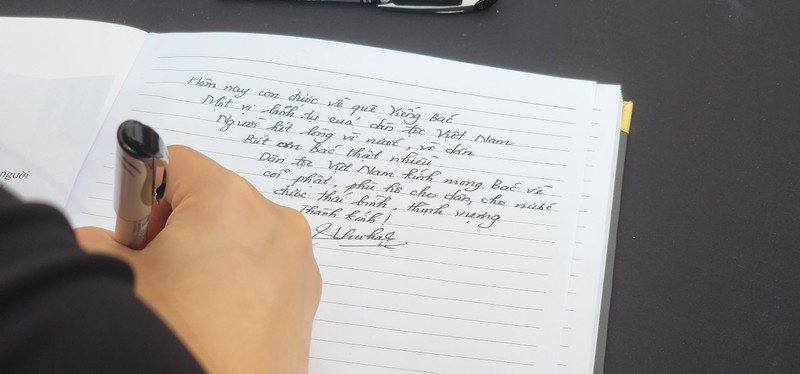 người
Hôm nay con được về quê viếng Bác
Một vị lãnh tụ của dân tộc Việt Nam
Người hết lòng vì nước, vì dân
Biết ơn Bác thật nhiều
Dân tộc Việt Nam kính mong Bác về
cõi phật, phù hộ cho dân, cho nước
được thái bình, thịnh vượng
Thành kính!